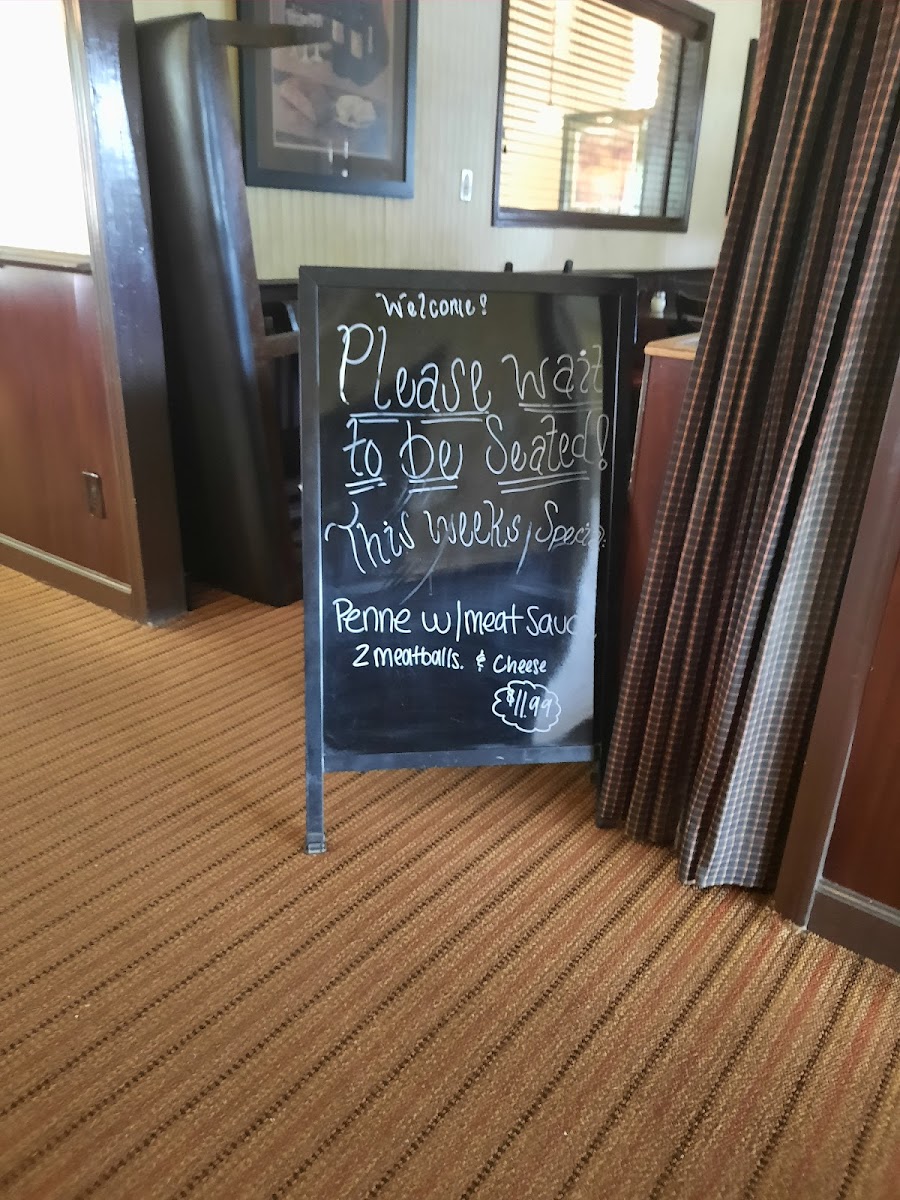 Welcome!
Please wait
to be Seated!
This weeks, Special:
Penne w/meat Sauce,
2 meatballs. & Cheese
$11.99